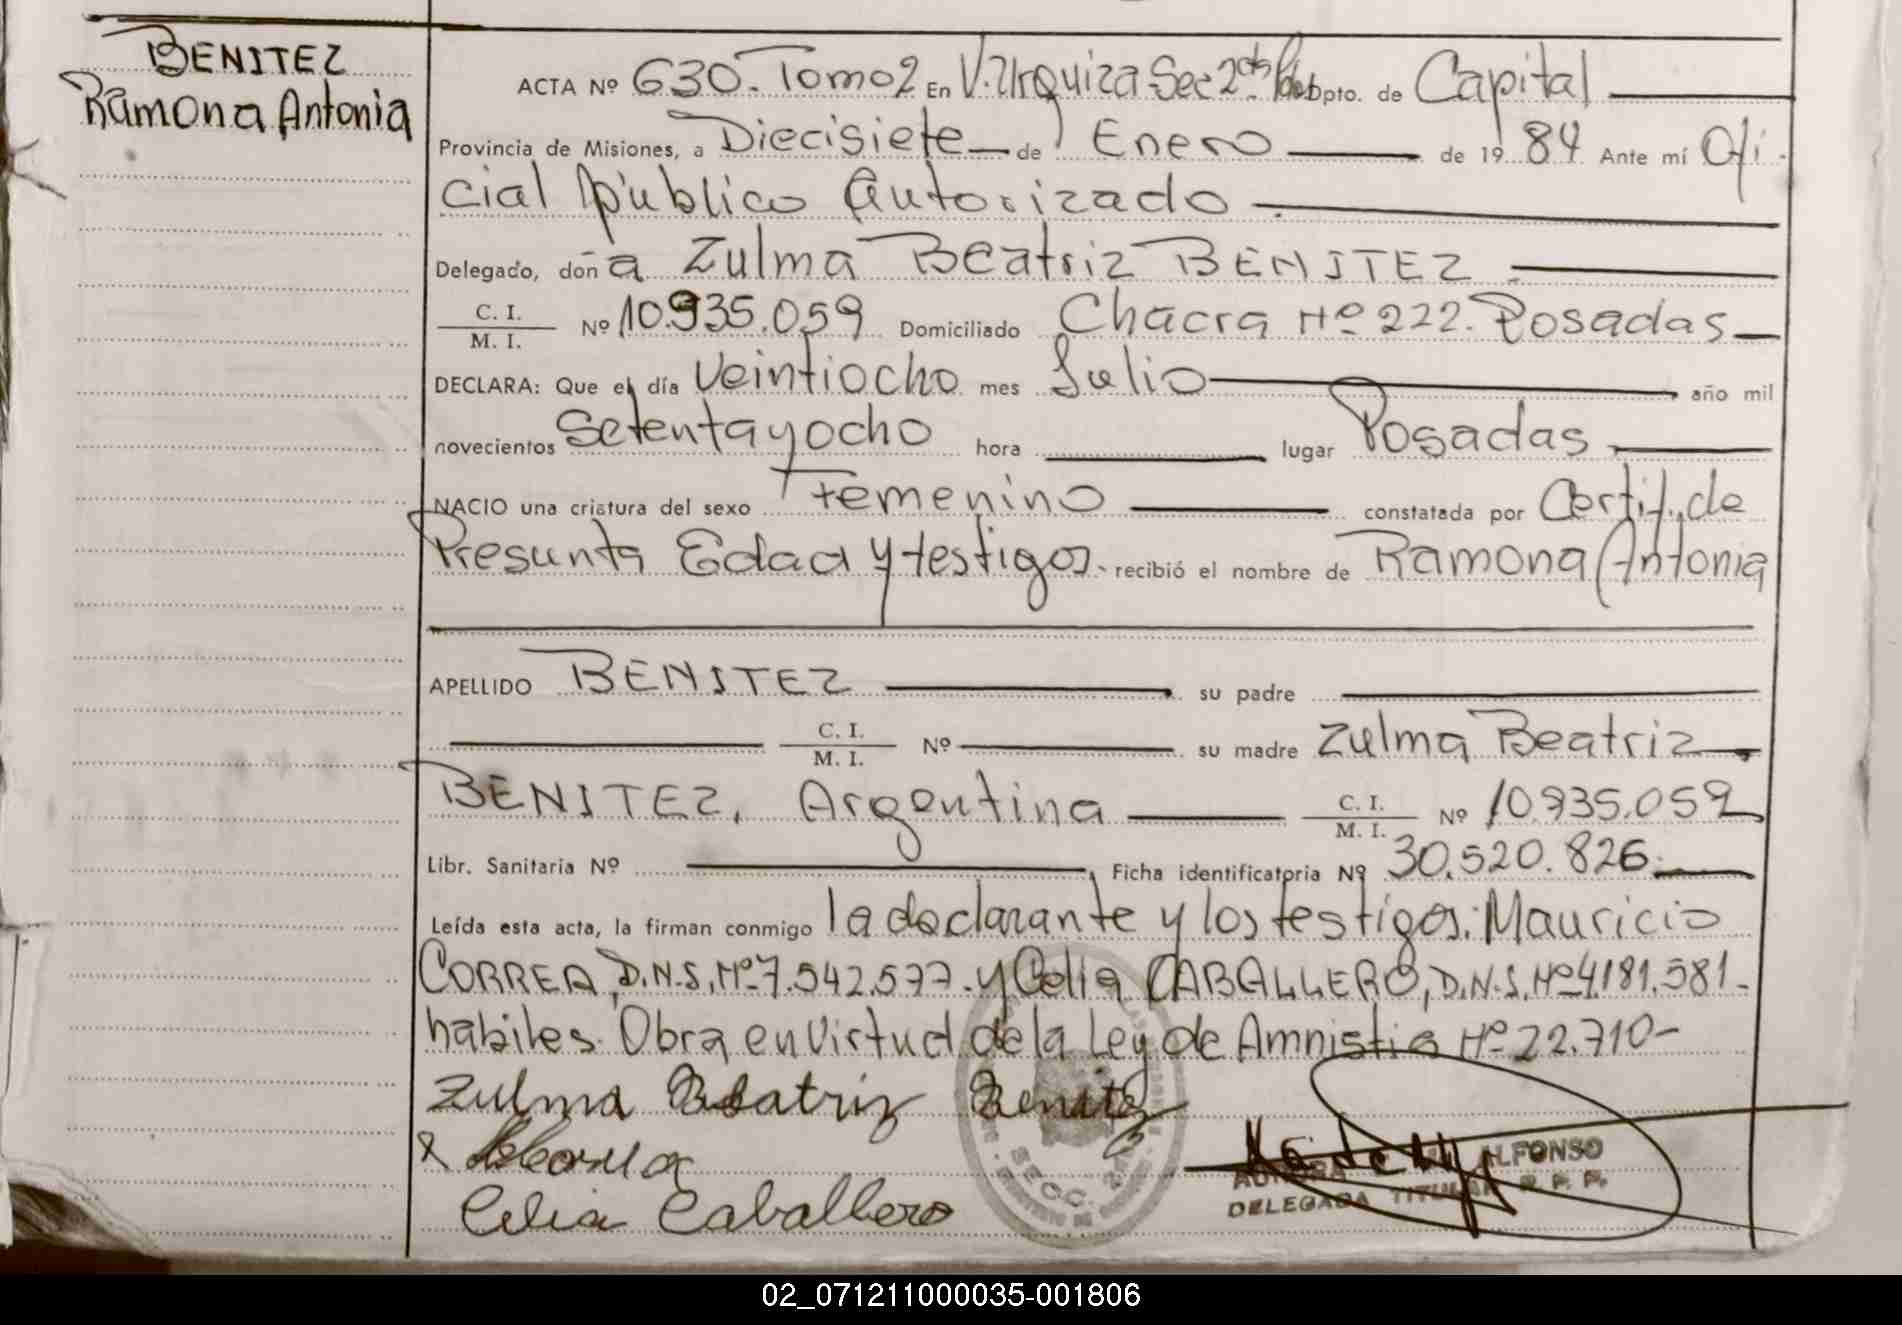 BENITEZ
Ramona Antonia
ACTA Nº 630. Tomo 2 En V. Urquiza Sec 2da Dpto. de Capital
Provincia de Misiones, a Diecisiete de Enero de 1984 Ante mí Ofi-
cial público Autorizado
Delegado, doña Zulma Beatriz BENITEZ
C. I.
M. I. Nº 10.935.059 Domiciliado Chacra Nº 222. Posadas
DECLARA: Que el día Veintiocho mes Julio año mil
novecientos Setentayocho hora lugar Posadas
NACIO una criatura del sexo Femenino constatada por Certif. de
Presunta Edad y testigos. recibió el nombre de Ramona Antonia
APELLIDO BENITEZ su padre
C. I.
M. I. Nº su madre Zulma Beatriz
BENITEZ, Argentina C. I.
M. I. Nº 10.935.059
Libr. Sanitaria Nº Ficha identificatoria Nº 30.520.826.
Leída esta acta, la firman conmigo la declarante y los testigos: Mauricio
CORREA, D.N.I. Nº 7.542.577. y Celia CABALLERO, D.N.I. Nº 4.181.581-
habiles. Obra en Virtud de la Ley de Amnistia Nº 22.710-
Zulma Beatriz Benitez
Celia Caballero
SECC. 2
ALFONSO
DELEGADA TITULAR R. P. P.
02_071211000035-001806